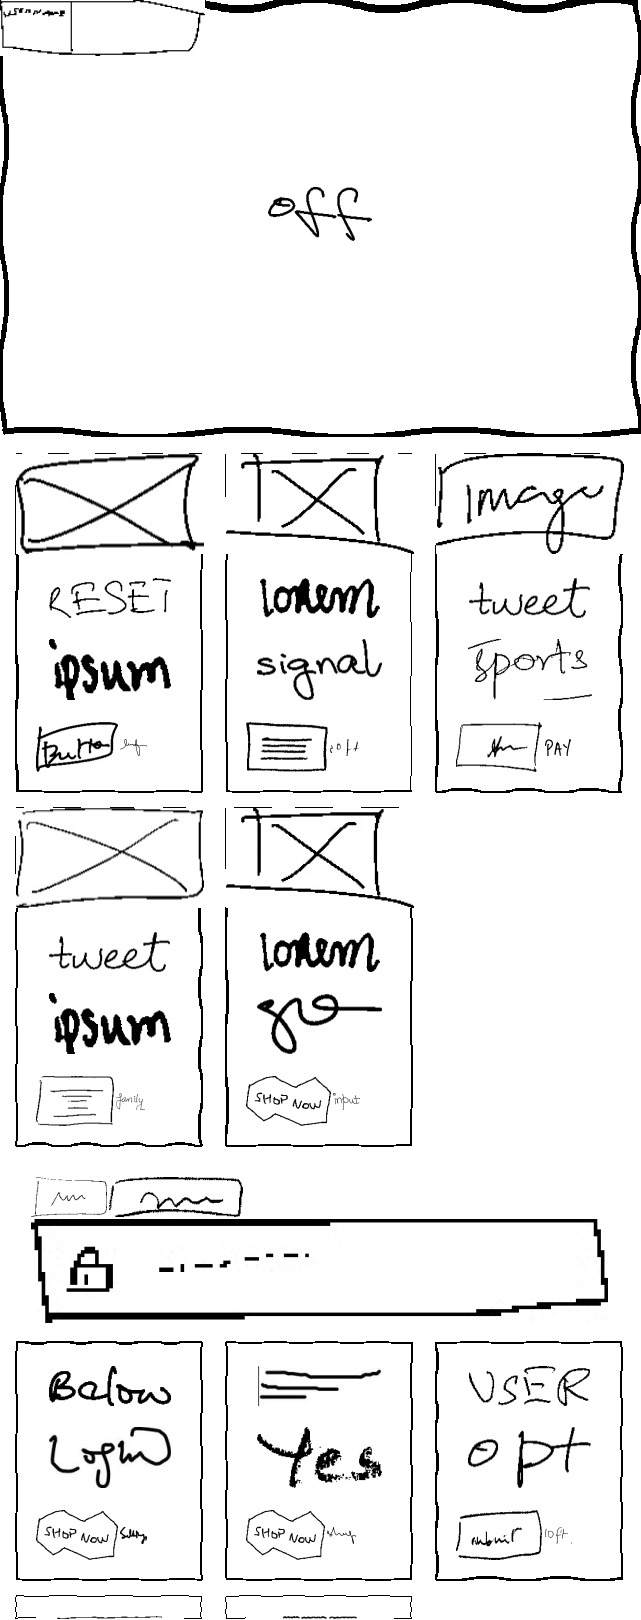 USERNAME
off
Image
RESET
ipsum
Button
lorem
signal
10ft
tweet
sports
PAY
tweet
ipsum
family
lorem
SHOP NOW input
Below
Login
SHOP NOW
Yes
SHOP NOW
USER
opt
submit 10ft.